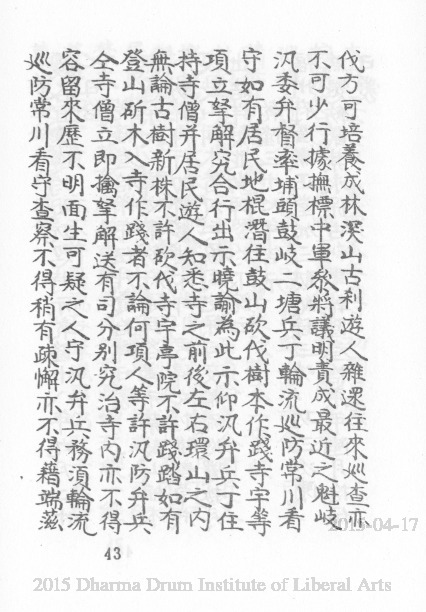 伐方可培養成林深山古刹遊人雜遝往來廵查亦
不可少行據撫標中軍叅將議明責成最近之魁岐
汛委弁督率埔頭鼓岐二塘兵丁輪流廵防常川看
守如有居民地棍潛往鼓山砍伐樹本作踐寺宇等
項立拏解究合行出示曉諭為此示仰汛弁兵丁住
持寺僧并居民遊人知悉寺之前後左右環山之内
無論古樹新株不許砍伐寺宇亭院不許踐踏如有
登山斫木入寺作踐者不論何項人等許汛防弁兵
仝寺僧立即擒拏解送有司分别究治寺内亦不得
容留來歷不明面生可疑之人守汛弁兵務須輪流
廵防常川看守查察不得稍有疎懈亦不得藉端滋
43
2015-04-17
2015 Dharma Drum Institute of Liberal Arts